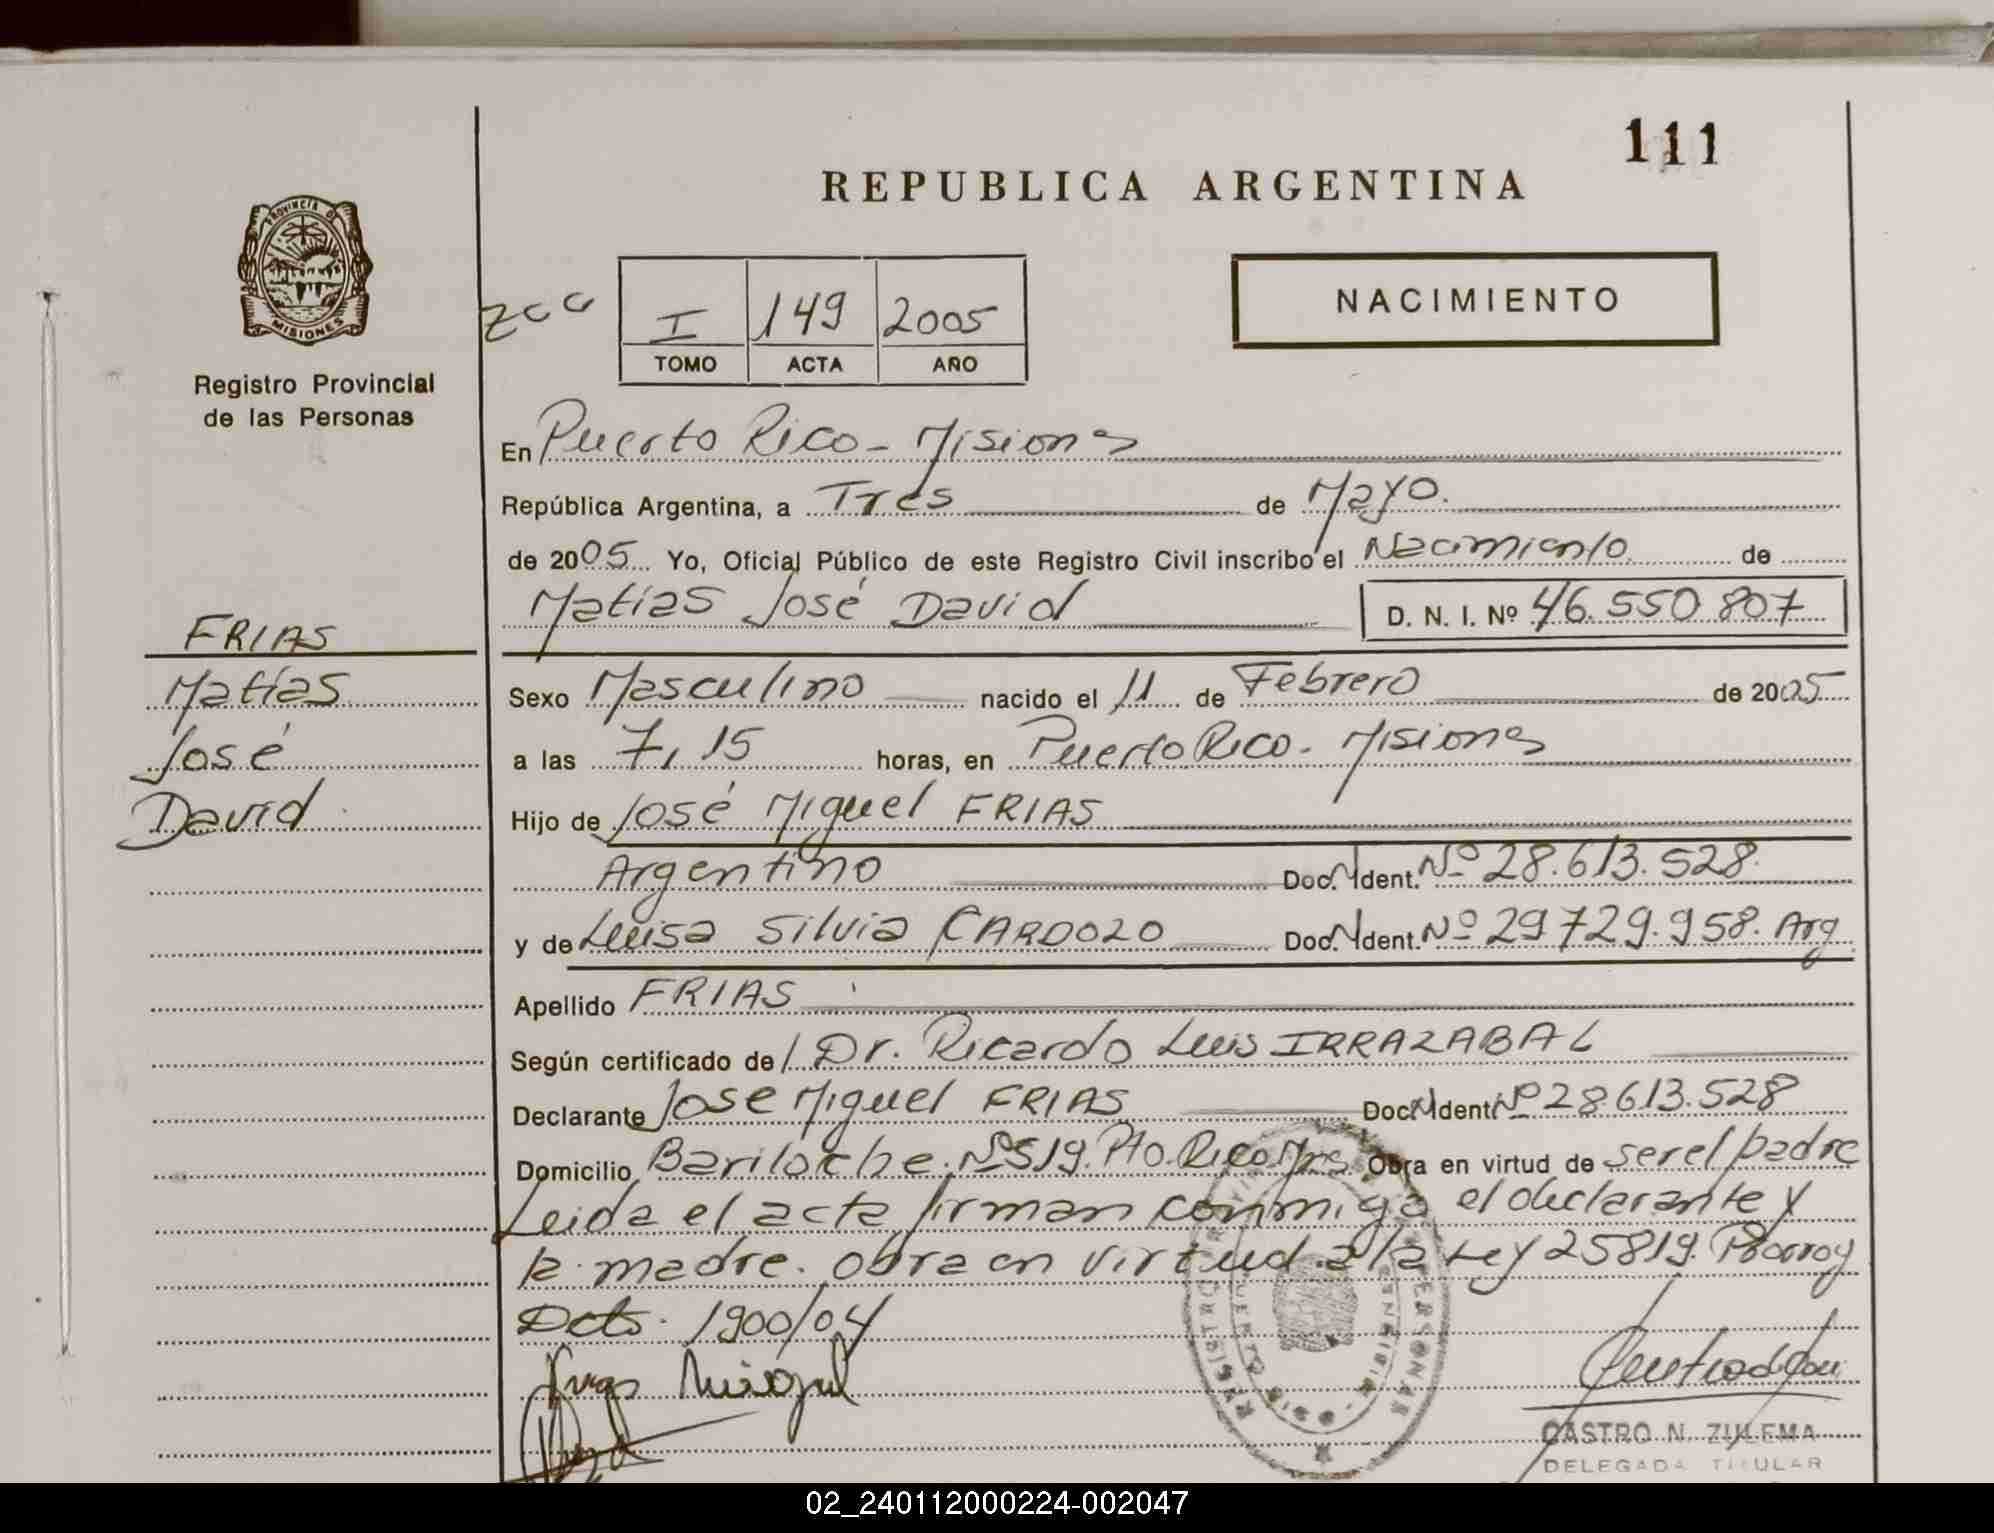 111
REPUBLICA ARGENTINA
PROVINCIA DE
MISIONES
Registro Provincial
de las Personas
zcc
I 149 2005
TOMO ACTA AÑO
NACIMIENTO
En Puerto Rico - Misiones
República Argentina, a Tres de Mayo.
de 2005 Yo, Oficial Público de este Registro Civil inscribo el Nacimiento de
Matías José David D. N. I. Nº 46.550.807
FRIAS
Matías
José
David
Sexo Masculino nacido el 11 de Febrero de 2005
a las 7,15 horas, en Puerto Rico - Misiones
Hijo de José Miguel FRIAS
Argentino Doc. Ident. Nº 28.613.528
y de Luisa Silvia CARDOZO Doc. Ident. Nº 29.729.958. Arg
Apellido FRIAS
Según certificado de Dr. Ricardo Luis IRRAZABAL
Declarante Jose Miguel FRIAS Doc. Ident. Nº 28.613.528
Domicilio Bariloche. Nº 519. Pto. Rico Mnes Obra en virtud de ser el padre
Leida el acta firman conmigo el declarante y
la madre. Obra en virtud a la Ley 25819.
Dcto. 1900/04
Frias Miguel
CASTRO N. ZULEMA
DELEGADA TITULAR
02_240112000224-002047